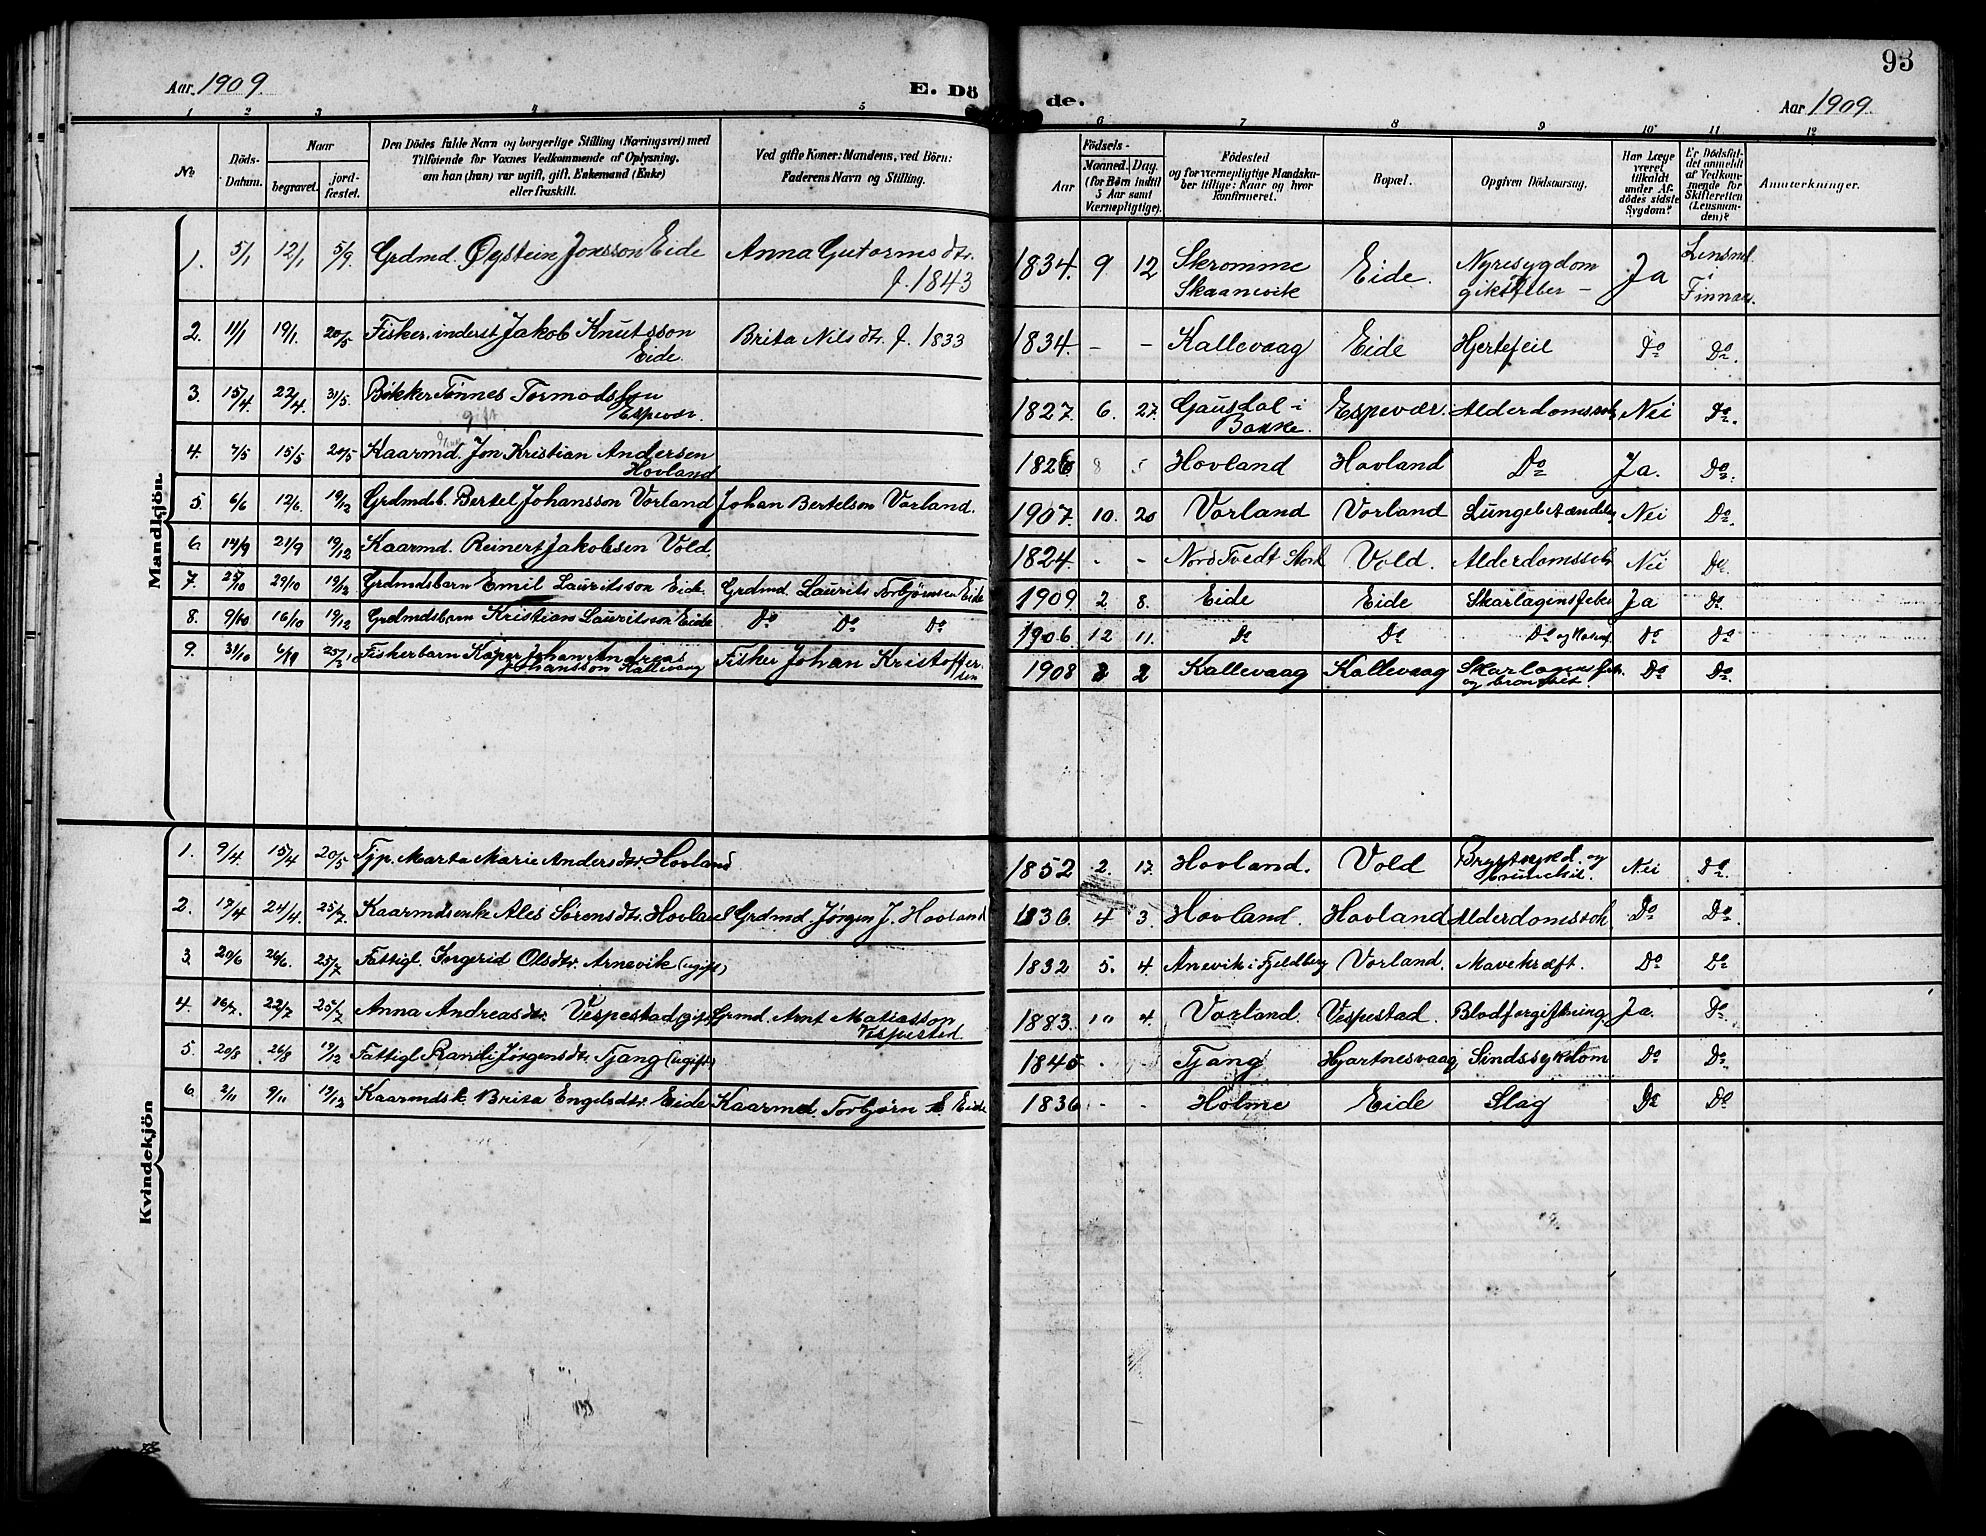 93
Aar 1909. E. Dö de. Aar 1909.
1 2 3 4 5 6 7 8 9 10 11 12
No
Döds-
Datum.
Naar
begravet.
jord-
fæstet.
Den Dödes fulde Navn og borgerlige Stilling (Næringsvei) med
Tilföiende for Voxnes Vedkommende af Oplysning,
om han (hun) var ugift, gift, Enkemand (Enke)
eller fraskilt.
Ved gifte Koner: Mandens, ved Börn:
Faderens Navn og Stilling.
Födsels-
Aar
Maaned. Dag.
(for Börn indtil
5 Aar samt
Værnepligtige).
Födested
og for værnepligtige Mandska-
ber tillige: Naar og hvor
konfirmeret.
Bopæl.
Opgiven Dödsaarsag.
Har Læge
været
tilkaldt
under Af-
dödes sidste
Sygdom?
Er Dödsfal-
det anmeldt
af Vedkom-
mende for
Skifteretten
(Lensman-
den)?
Anmærkninger.
Mandkjön.
1. 5/1 12/1 5/9 Grdmd. Øystein Jonsson Eide Anna Gutormsdtr. 1834. 9 12 Skromme Eide. Nyresygdom Ja Lensmd.
f. 1843 Skaanevik giktfeber - i Finnaas.
2. 11/1 19/1. 20/5 Fisker, inderst Jakob Knutsson Brita Nilsdtr. f. 1833 1834. - - Kallevaag Eide Hjertefeil Do Do.
Eide.
3. 15/4. 22/4. 31/5. Bökker Tönnes Tormodsen 1827. 6. 27. Gausdal i Espevær. Alderdomssvk Nei Do.
gift Espevær. Bakke.
4. 7/5 15/5 20/5 Kaarmd. Jon Kristian Andersen 1826 8 5 Hovland Hovland Do Ja. Do.
Hovland
5. 6/6 12/6. 19/12 Grdmdsb. Bertel Johansson Vorland Johan Bertelson Vorland. 1907. 10. 20 Vorland Vorland Lungebetændels Nei Do.
6. 14/9 21/9 19/12 Kaarmd. Reinert Jakobsen Vold. 1824. - - Nord Tvedt Stord Vold. Alderdomssvk Nei Do.
7. 25/10 29/10 19/12 Grdmdsbarn Emil Lauritsson Eide. Grdmd. Laurits Torbjörnsen Eide 1909 2 8. Eide Eide Skarlagensfeber Ja Do
8. 9/10 16/10 19/12 Grdmdsbarn Kristian Lauritsson Eide Do Do Do 1906 12 11. Do Do Do og Do Do
9. 31/10 Fiskerbarn Kasper Johan Andreas Fisker Johan Kristoffer- 1908 2 Kallevaag Kallevaag Skarlagensfeb. Do Do.
Johansson Kallevaag sen og bronkit.
Kvindekjön
1. 9/4 15/4 20/5 Typ. Marta Marie Andersdtr. Hovland 1852 2. 17. Hovland. Vold Brystsygd. og Nei Do
bronchit.
2. 17/4 24/4. 25/7. Kaarmdsenke Ales Sörensdtr. Hovland Grdmd. Jörgen J. Hovland 1836. 4 3. Hovland. Hovland Alderdomssvk. Do Do.
3. 20/6 26/6. 25/7 Fattigl. Ingerid Olsdtr. Arnevik (ugift) 1832 5. 4. Anevik i Fjeldberg Vorland. Mavekræft. Do Do
4. 16/7. 22/7 25/7 Anna Andreasdtr. Vespestad (gift) Grmd. Arnt Matiasson 1883. 10 4. Vorland. Vespestad. Blodforgiftning Ja. Do
Vespestad
5. 20/8 26/8 19/12 Fattigl Randi Jörgensdtr. Tjang (ugift) 1845 . . Tjang Hjartnesvaag Sindssykdom Do Do.
6. 2/11 9/11 19/12 Kaarmdsk. Brita Engelsdtr. Eide Kaarmd. Torbjörn E Eide 1836 - - Holme Eide Slag Do Do